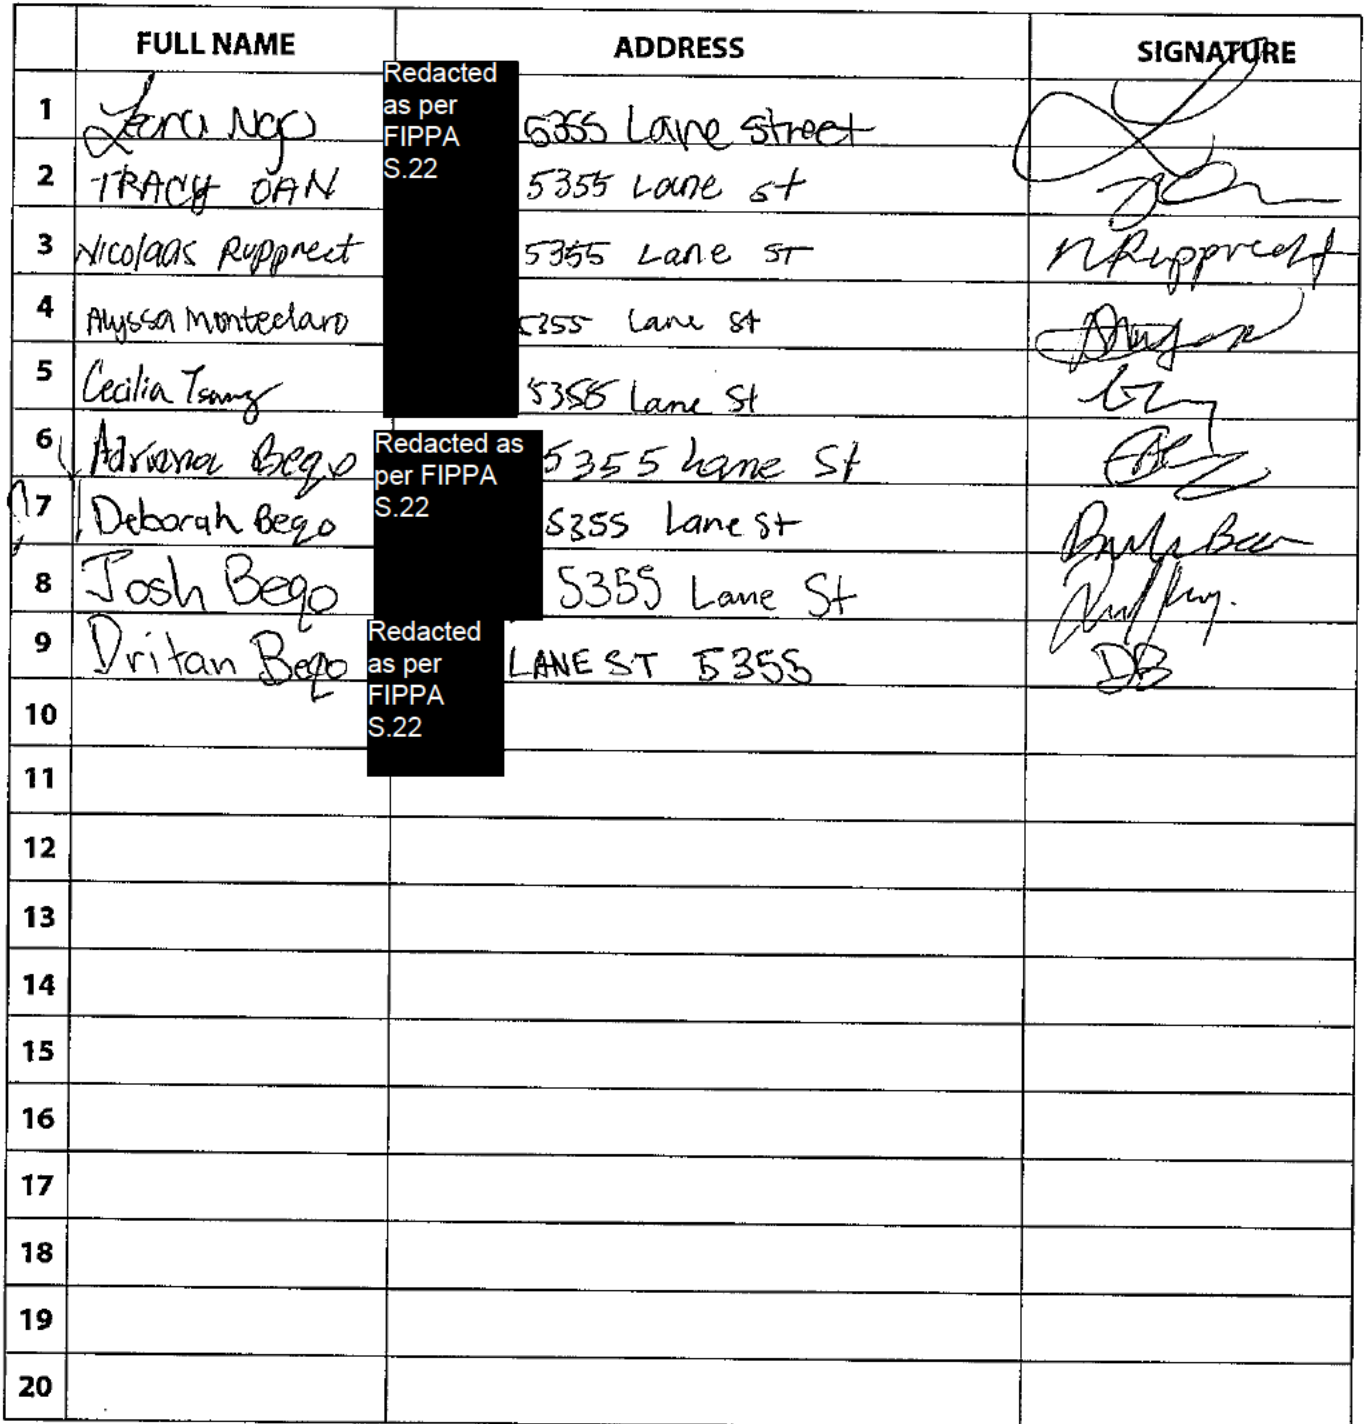 FULL NAME ADDRESS SIGNATURE
Redacted
as per
FIPPA
S.22
1 Ngo 5355 Lane Street
2 TRACY DAN 5355 Lane St
3 Nicolaas Rupprect 5355 Lane ST N Ruppreckt
4 Alyssa Monteclaro 5355 Lane St
5 Cecilia Tsang 5355 Lane St
Redacted as
per FIPPA
S.22
6 Adriana Beqo 5355 Lane St
7 Deborah Beqo 5355 Lane St
8 Josh Beqo 5355 Lane St
Redacted
as per
FIPPA
S.22
9 Dritan Beqo LANE ST 5355 DB
10
11
12
13
14
15
16
17
18
19
20